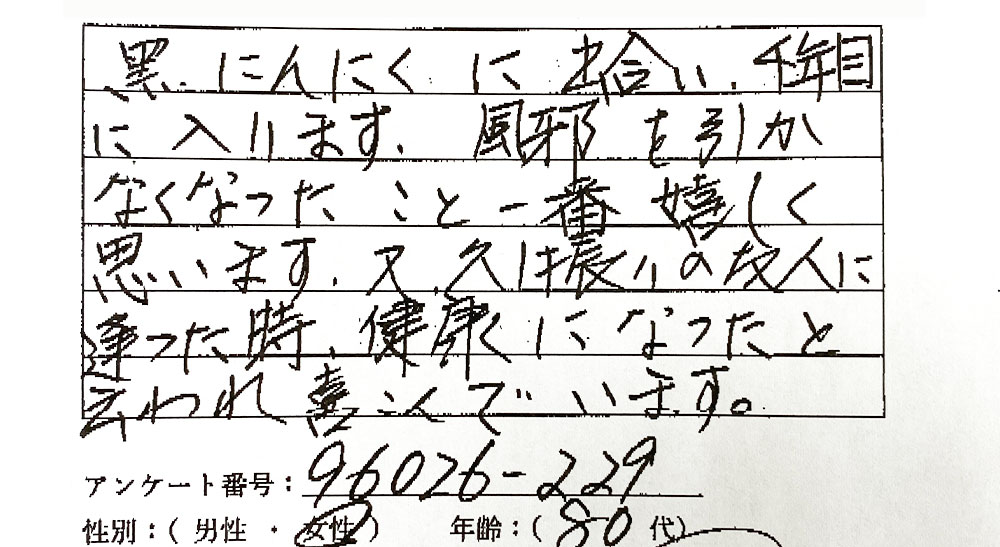 黒にんにくに出合い、4年目
に入ります。風邪を引か
なくなったこと一番嬉しく
思います、又、久し振りの友人に
逢った時、健康になったと
云われ喜こんでいます。
アンケート番号：96026-229
性別：( 男性 ・ 女性 ) 年齢：( 80 代)